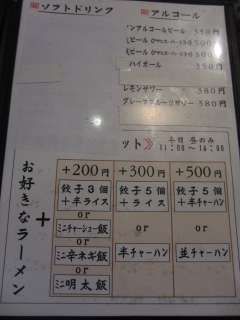 ソフトドリンク
アルコール
ノンアルコールビール 350円
ビール
500
ビール
500
ハイボール 350円
レモンサワー 380円
グレープフルーツサワー 380円
ット》 平日 昼のみ
11:00~14:00
お好きなラーメン
+
+200円
餃子3個
+半ライス
or
ミニチャーシュー飯
or
ミニ辛ネギ飯
or
ミニ明太飯
+300円
餃子5個
+ライス
or
半チャーハン
+500円
餃子5個
+半チャーハン
or
並チャーハン